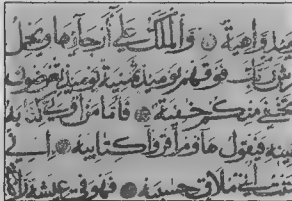 ميذ واهية وَالْمَلَكُ عَلَىٰ أَرْجَآئِهَا وَيَحْمِلُ
رش ربك فوقهم يوميذ ثمنية يوميذ تعرضون
تخفى منكم خافية فاما من اوتى كتبه
مينه فيقول هاؤم اقرءوا كتابيه انى
ننت انى ملاق حسابيه فهو فى عيشة را